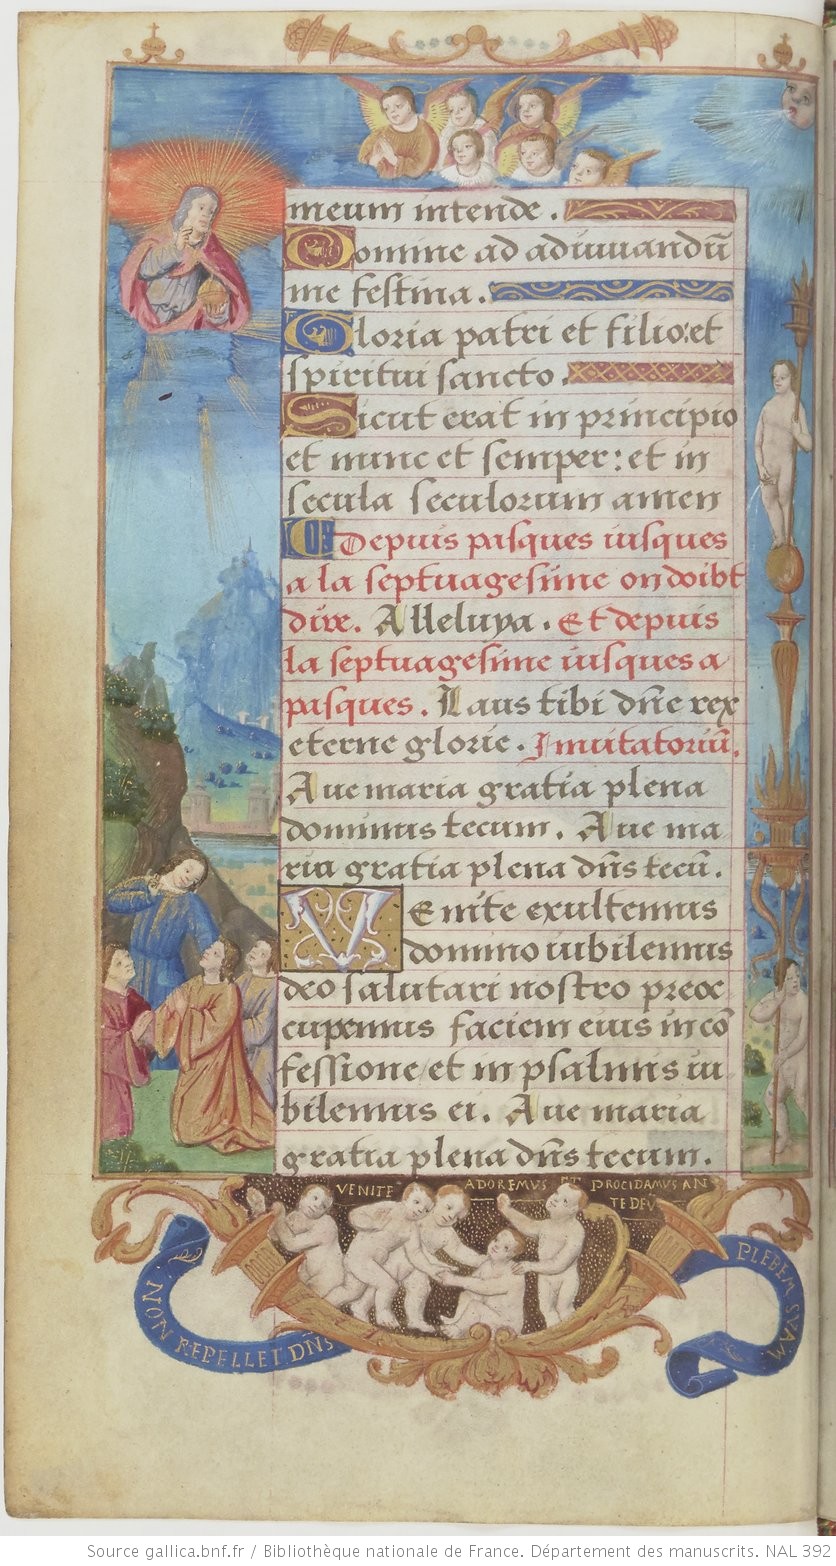 meum intende.
Domine ad adiuuandū
me festina.
Gloria patri et filio: et
spiritui sancto.
Sicut erat in principio
et nunc et semper: et in
secula seculorum amen
Depuis pasques iusques
a la septuagesime on doibt
dire. Alleluya. Et depuis
la septuagesime iusques a
pasques. Laus tibi dn̄e rex
eterne glorie. Inuitatoriū.
Aue maria gratia plena
dominus tecum. Aue ma
ria gratia plena dn̄s tecū.
Venite exultemus
domino iubilemus
deo salutari nostro preoc
cupemus faciem eius in cō
fessione et in psalmis iu
bilemus ei. Aue maria
gratia plena dn̄s tecum.
VENITE ADOREMVS ET PROCIDAMVS AN
TE DEV̄
NON REPELLET DN̄S
PLEBEM SVAM
Source gallica.bnf.fr / Bibliothèque nationale de France. Département des manuscrits. NAL 392